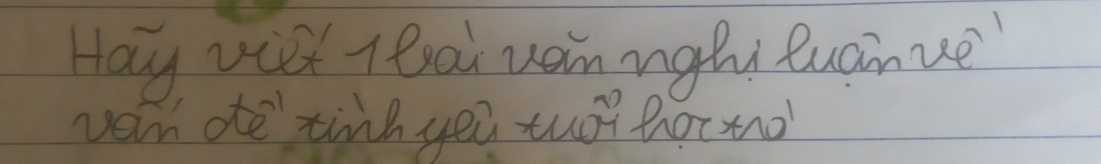 Hãy viết 1 bài văn nghị luận về
vấn đề tình yêu tuổi học trò